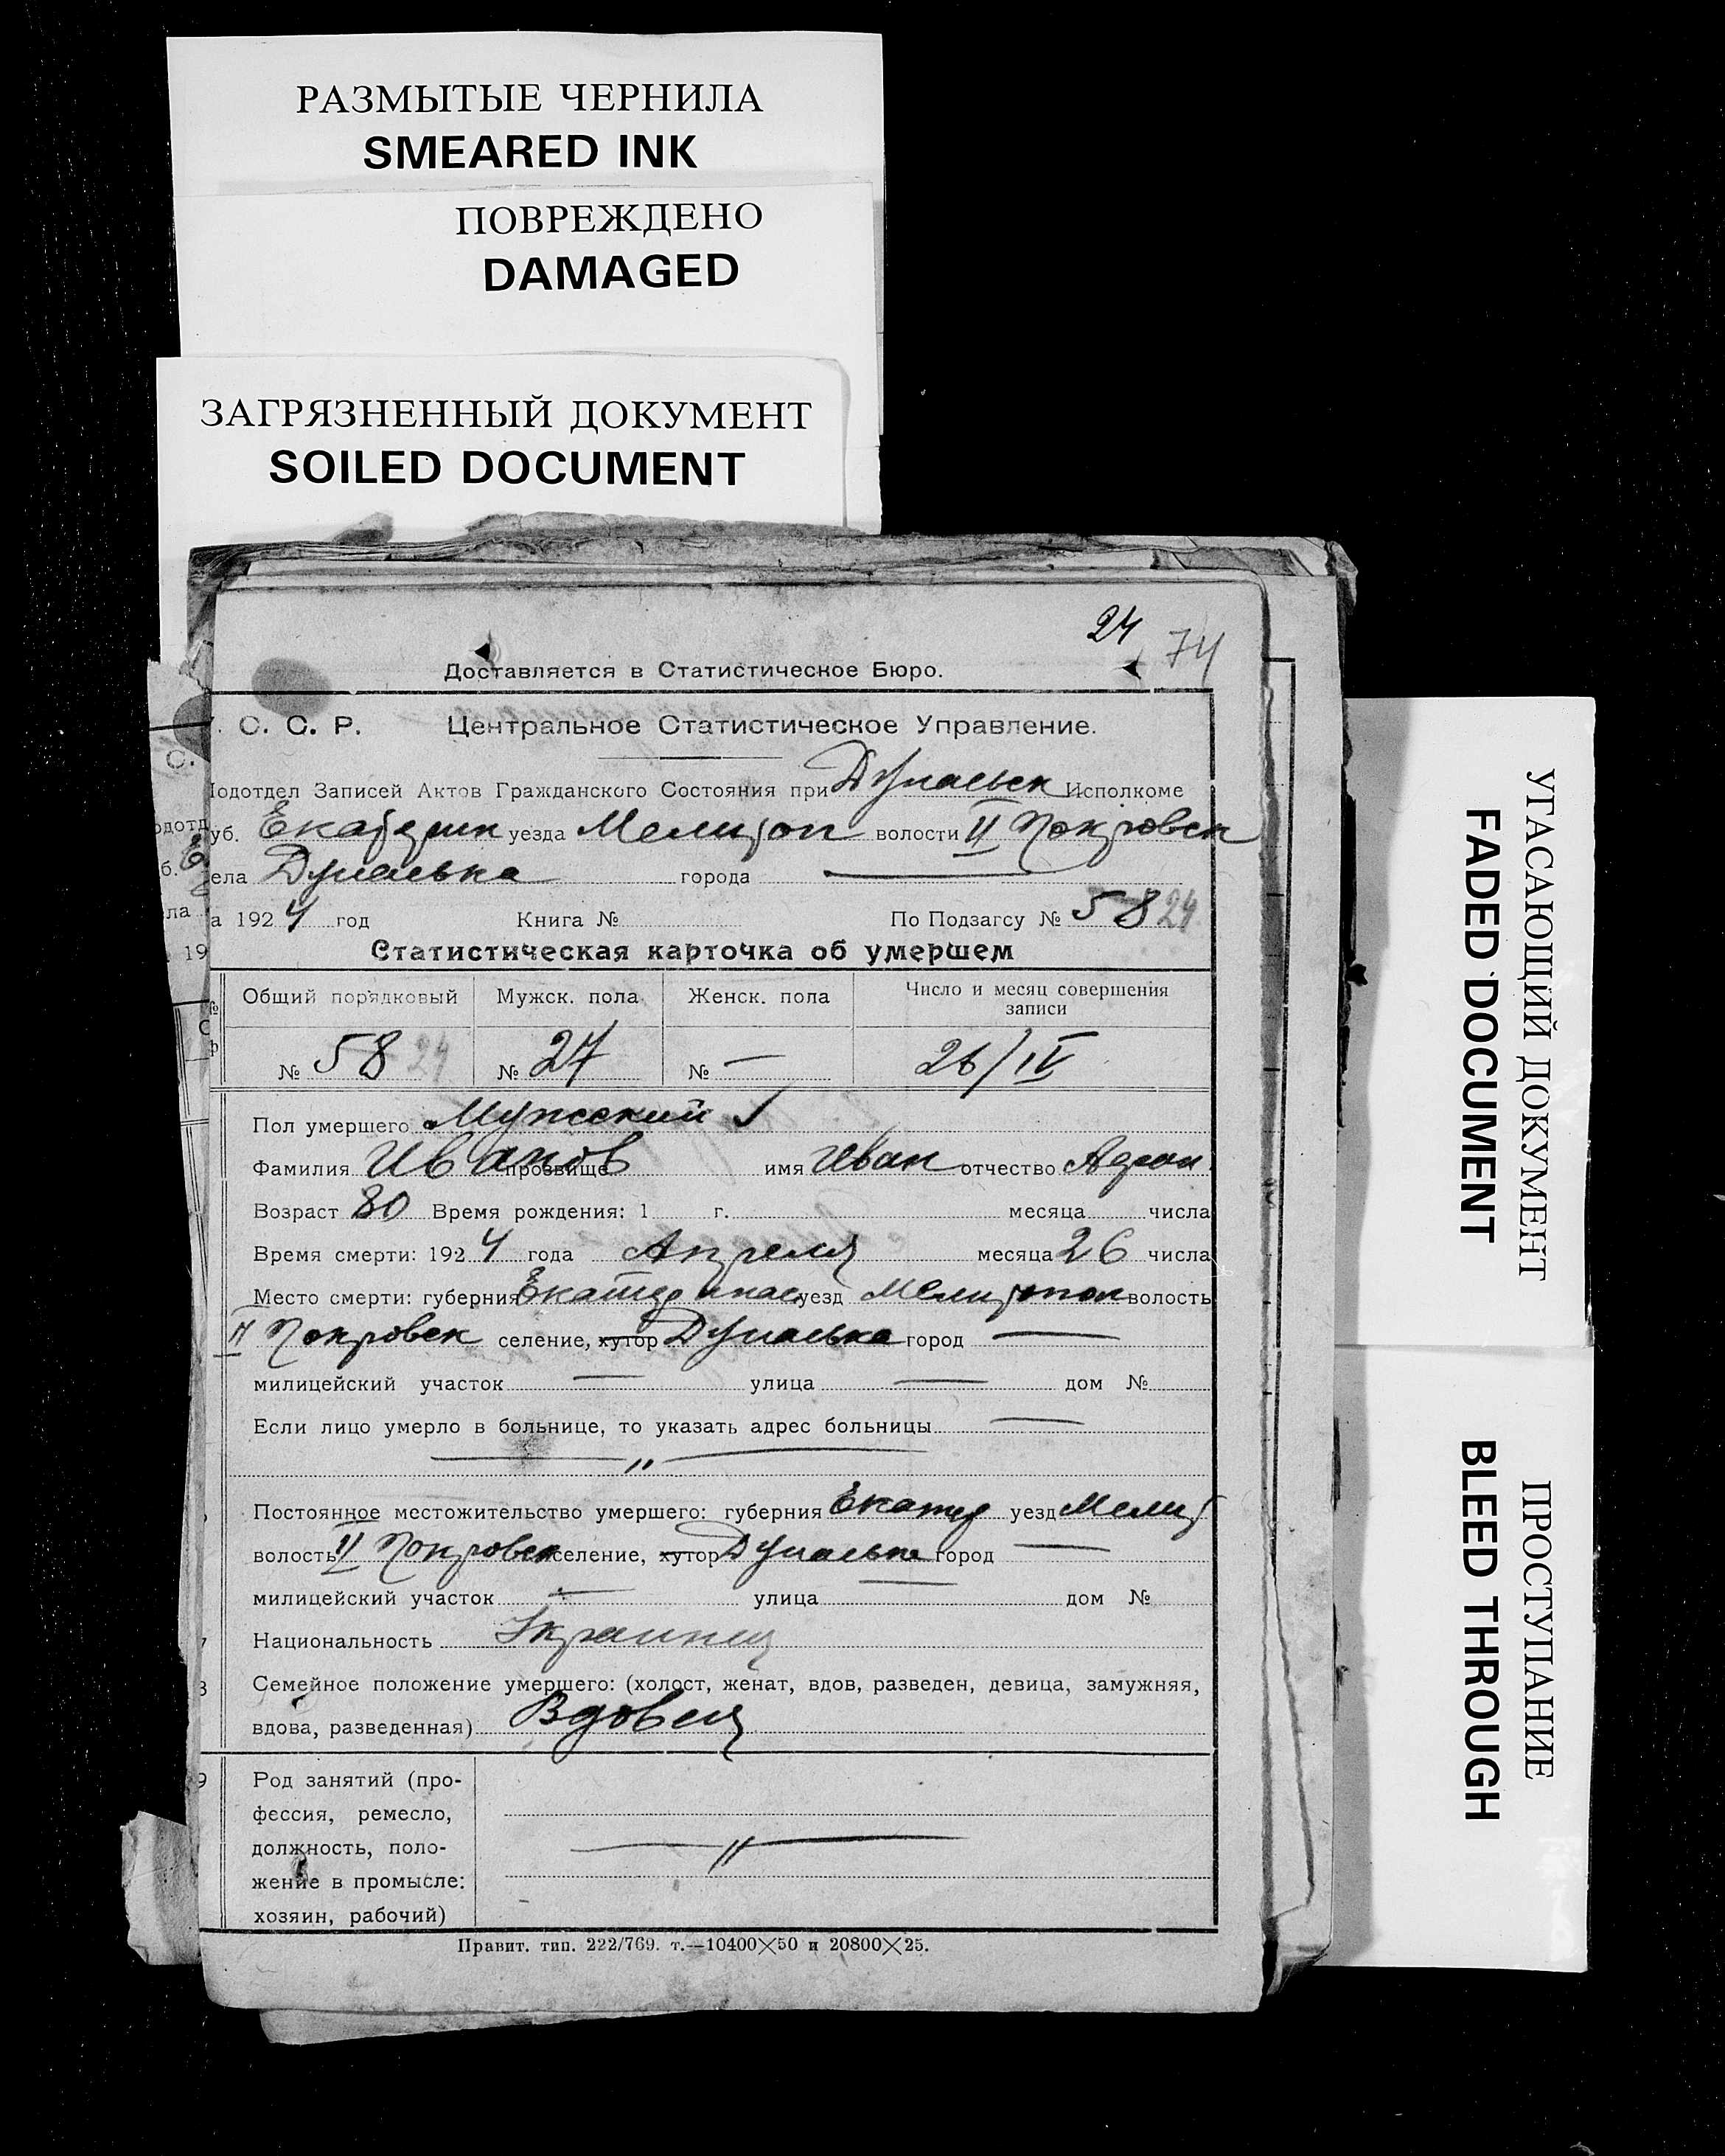 РАЗМЫТЫЕ ЧЕРНИЛА
SMEARED INK
ПОВРЕЖДЕНО
DAMAGED
ЗАГРЯЗНЕННЫЙ ДОКУМЕНТ
SOILED DOCUMENT
24 74
Доставляется в Статистическое Бюро.
С. С. Р. Центральное Статистическое Управление.
одотдел Записей Актов Гражданского Состояния при Дунаевск Исполкоме
уб. уезда Мелитоп волости II Покровск
ела Дунаевка города —
а 1924 год Книга № По Подзагсу № 58 24
Статистическая карточка об умершем
Общий порядковый Мужск. пола Женск. пола Число и месяц совершения
записи
№ 58 24 № 27 № — 26/IV
Пол умершего Мужский
Фамилия Иванов прозвище имя Иван отчество
Возраст 80 Время рождения: 1 г. месяца числа
Время смерти: 1924 года Апреля месяца 26 числа
Место смерти: губерния уезд Мелитопол волость
II Покровск селение, хутор Дунаевка город —
милицейский участок — улица — дом №
Если лицо умерло в больнице, то указать адрес больницы —
— " —
Постоянное местожительство умершего: губерния Екатер уезд Мелит
волость II Покровск селение, хутор Дунаевке город —
милицейский участок — улица — дом №
Национальность Украинец
Семейное положение умершего: (холост, женат, вдов, разведен, девица, замужняя,
вдова, разведенная) Вдовец
9 Род занятий (про-
фессия, ремесло,
должность, поло-
жение в промысле:
хозяин, рабочий)
— " —
Правит. тип. 222/769. т.—10400×50 и 20800×25.
УГАСАЮЩИЙ ДОКУМЕНТ
FADED DOCUMENT
ПРОСТУПАНИЕ
BLEED THROUGH